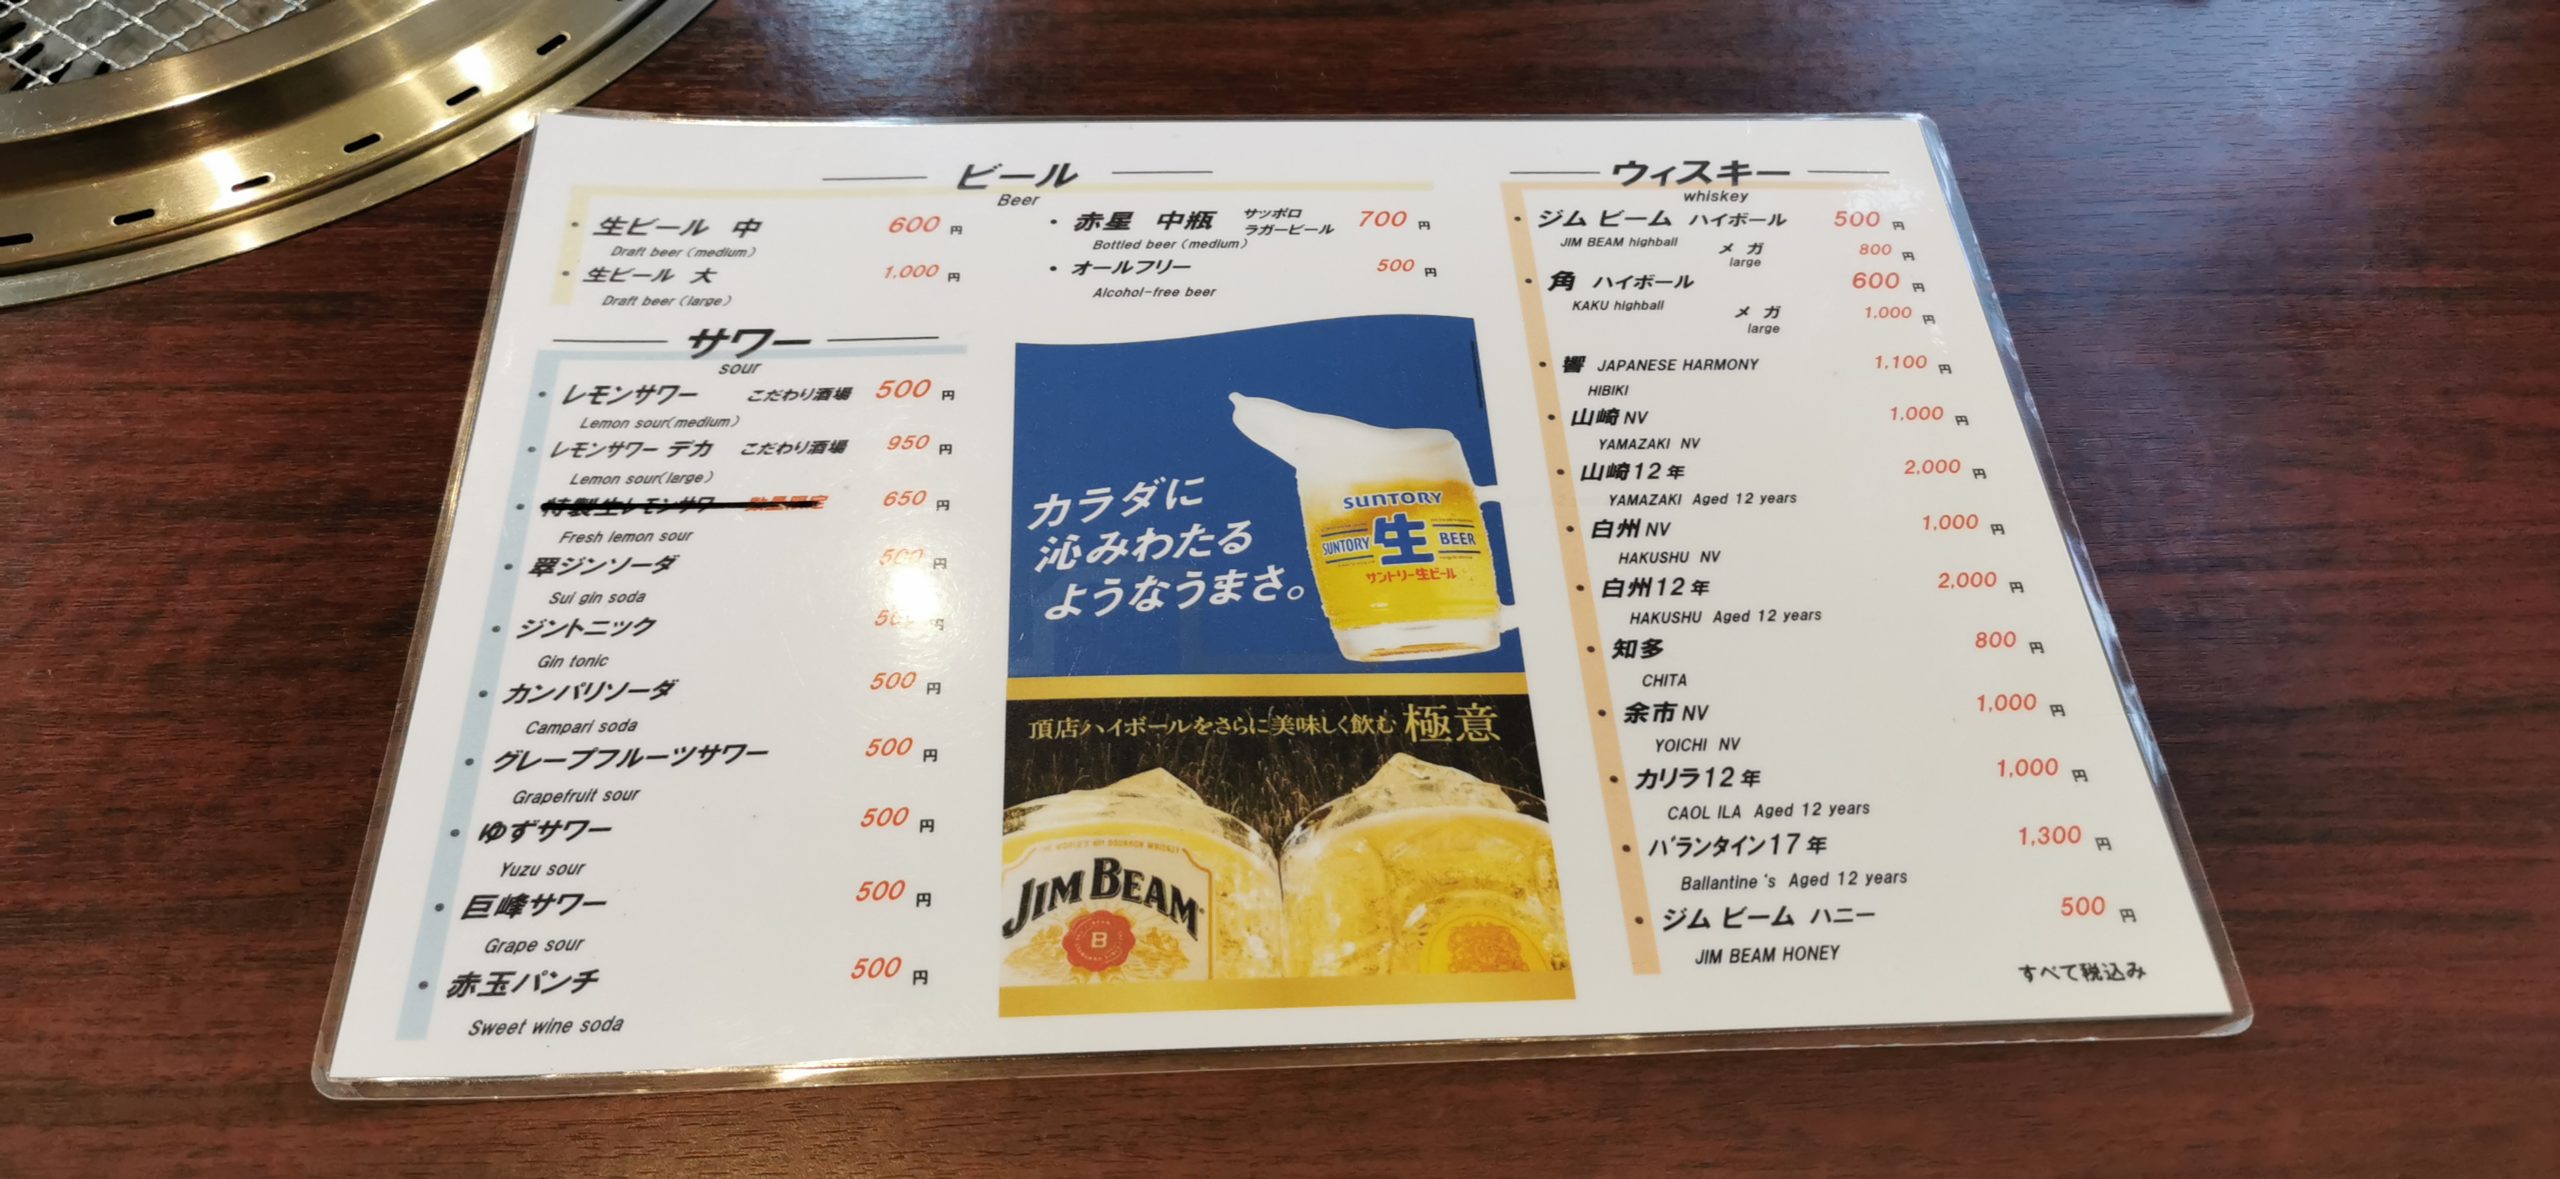 ビール
Beer
・生ビール 中 600 円
Draft beer (medium)
・生ビール 大 1,000 円
Draft beer (large)
・赤星 中瓶 サッポロ ラガービール 700 円
Bottled beer (medium)
・オールフリー 500 円
Alcohol-free beer
サワー
sour
・レモンサワー こだわり酒場 500 円
Lemon sour(medium)
・レモンサワー デカ こだわり酒場 950 円
Lemon sour(large)
・特製生レモンサワー 数量限定 650 円
Fresh lemon sour
・翠ジンソーダ 500 円
Sui gin soda
・ジントニック 500 円
Gin tonic
・カンパリソーダ 500 円
Campari soda
・グレープフルーツサワー 500 円
Grapefruit sour
・ゆずサワー 500 円
Yuzu sour
・巨峰サワー 500 円
Grape sour
・赤玉パンチ 500 円
Sweet wine soda
カラダに
沁みわたる
ようなうまさ。
SUNTORY
SUNTORY 生 BEER
サントリー生ビール
頂店ハイボールをさらに美味しく飲む 極意
JIM BEAM
B
ウィスキー
whiskey
・ジム ビーム ハイボール 500 円
JIM BEAM highball
メガ 800 円
large
・角 ハイボール 600 円
KAKU highball
メガ 1,000 円
large
・響 JAPANESE HARMONY 1,100 円
HIBIKI
・山崎 NV 1,000 円
YAMAZAKI NV
・山崎12年 2,000 円
YAMAZAKI Aged 12 years
・白州 NV 1,000 円
HAKUSHU NV
・白州12年 2,000 円
HAKUSHU Aged 12 years
・知多 800 円
CHITA
・余市 NV 1,000 円
YOICHI NV
・カリラ12年 1,000 円
CAOL ILA Aged 12 years
・バランタイン17年 1,300 円
Ballantine's Aged 12 years
・ジム ビーム ハニー 500 円
JIM BEAM HONEY
すべて税込み